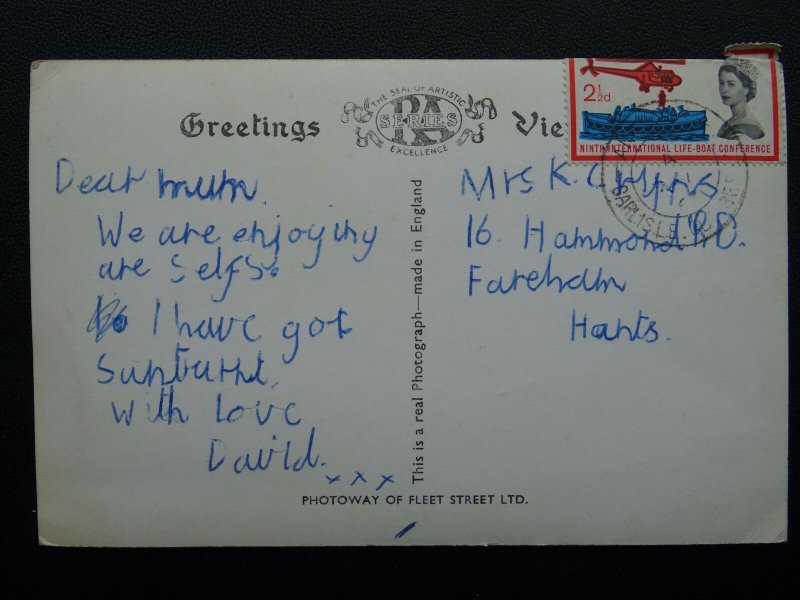 Greetings
THE SEAL OF ARTISTIC
RA
SERIES
EXCELLENCE
Vie
2½d
NINTH INTERNATIONAL LIFE-BOAT CONFERENCE
CARLISLE
Dear mum.
We are enjoying
are selfs.
I have got
Sunburnt.
With Love
David.
x x x
This is a real Photograph—made in England
Mrs K.
16. Hammond RD.
Fareham
Hants.
PHOTOWAY OF FLEET STREET LTD.